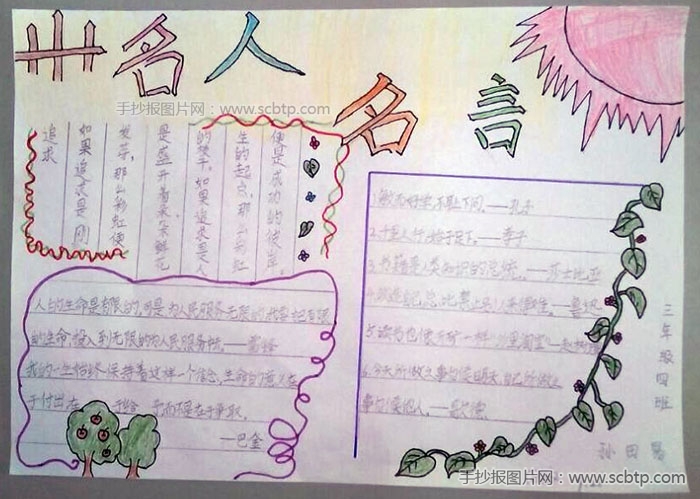 名人
名言
手抄报图片网：www.scbtp.com
追求
如果追求是刚
发芽，那么彩虹便
是盛开着朵朵鲜花
的梦，如果追求是人
生的起点，那么彩虹
便是成功的彼岸。
1.敏而好学，不耻下问。——孔子
2.千里之行，始于足下。
3.书籍是人类知识的总统。——莎士比亚
——鲁迅
5.读书也像开矿一样“沙里淘金”
6.今天所做之事勿候明天，自己所做之
事勿候他人。——歌德
人的生命是有限的，可是为人民服务无限的，我要把有限
的生命，投入到无限的为人民服务中。——雷锋
我的一生始终保持着这样一个信念，生命的意义在
于付出，在于给予，而不是在于争取。
——巴金
三年级四班
孙田
手抄报图片网：www.scbtp.com